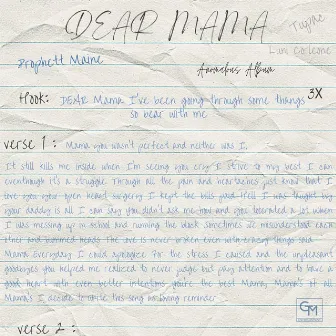 DEAR MAMA
Tupac
Prophett Maine
Luni Coleone
Anomalous Album
Hook: DEAR Mama I've been going through some things 3X
so bear with me
verse 1 : Mama you wasn't perfect and neither was I,
It still kills me inside when I'm seeing you cry I strive to my best I can
eventhough it's a struggle. Through all the pain and heartaches just know that I
love you your open heart surgery I kept the bills paid Hell I was taught by
your daddy is all I can say you didn't ask me how and you tolerated a lot when
I was messing up in school and running the block sometimes we misunderstood each
other and bummed heads The love is never broken even with crazy things said
Mama Everyday I could apologize for the stress I caused and the unpleasant
goodbyes you helped me realized to never judge but pay attention and to have a
good heart with even better intentions you're the best Mama, Mama's of all
Mama's I decide to write this song as loving reminder
GM
verse 2 :